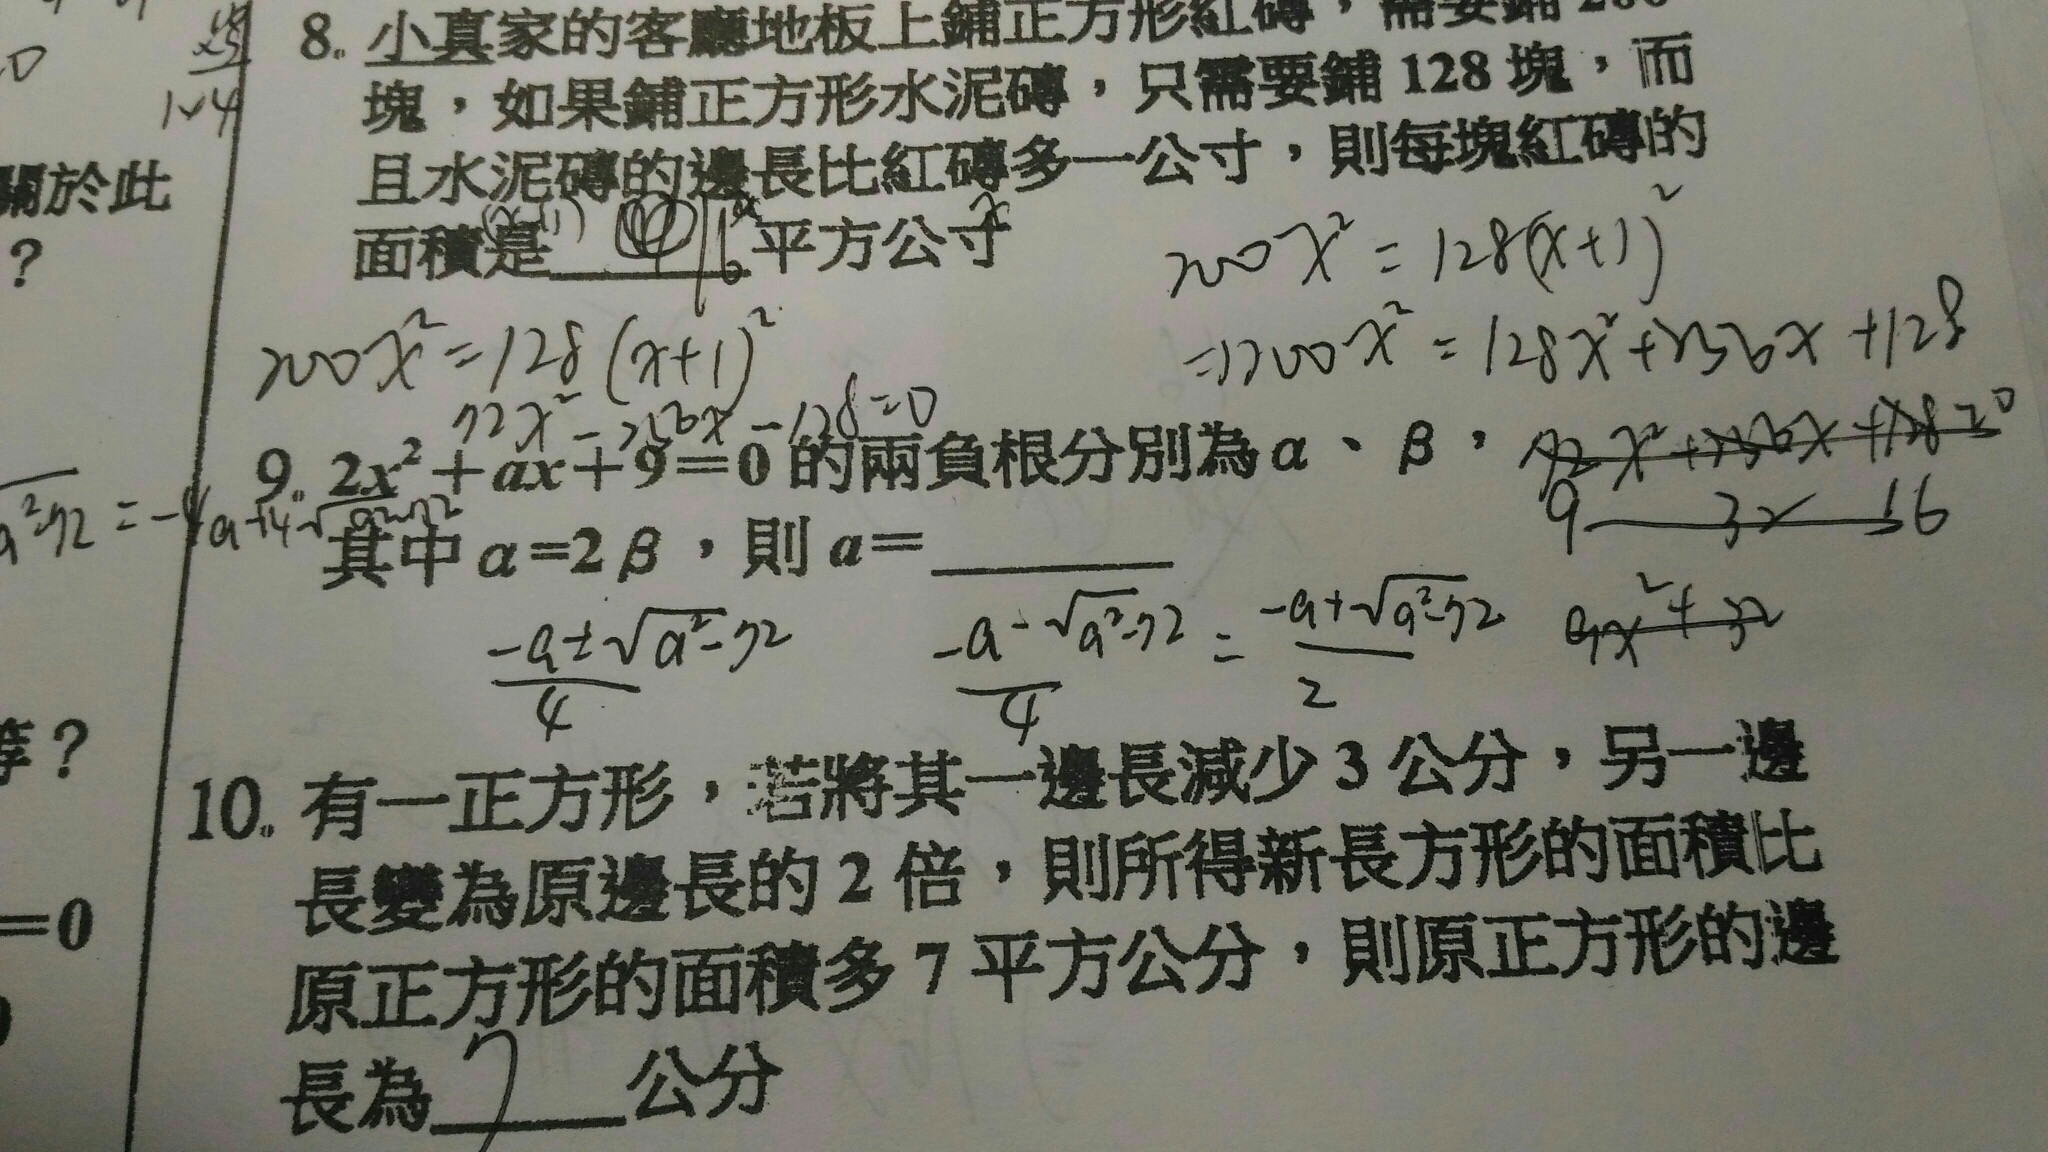 8. 小真家的客廳地板上鋪正方形紅磚，需要鋪 200
塊，如果鋪正方形水泥磚，只需要鋪 128 塊，而
且水泥磚的邊長比紅磚多一公寸，則每塊紅磚的
面積是 16 平方公寸
(x+1)
x
200x²=128(x+1)²
200x²=128(x+1)²
=>200x²=128x²+256x+128
72x²-256x-128=0
9 32 16
9x²+32
9. 2x²+ax+9=0 的兩負根分別為 α、β，
其中 α=2β，則 a=
-a±√a²-72
4
-a-√a²-72 = -a+√a²-72
4 2
10. 有一正方形，若將其一邊長減少 3 公分，另一邊
長變為原邊長的 2 倍，則所得新長方形的面積比
原正方形的面積多 7 平方公分，則原正方形的邊
長為 7 公分
關於此
？
等？
=0